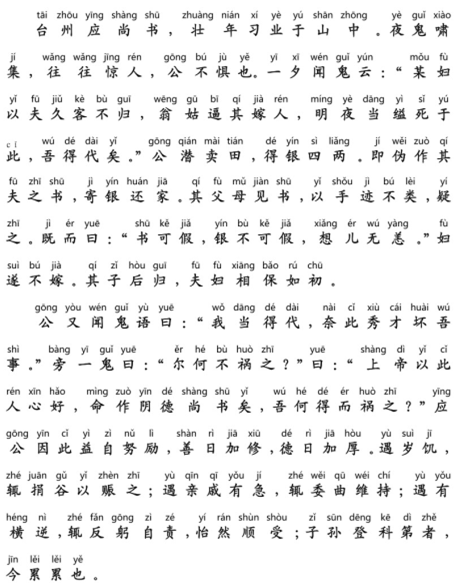 tāi zhōu yīng shàng shū zhuàng nián xí yè yú shān zhōng yè guǐ xiào
台州应尚书，壮年习业于山中。夜鬼啸
jí wǎng wǎng jīng rén gōng bú jù yě yì xī wén guǐ yún mǒu fù
集，往往惊人，公不惧也。一夕闻鬼云：“某妇
yǐ fū jiǔ kè bù guī wēng gū bī qí jià rén míng yè dāng yì sǐ yú
以夫久客不归，翁姑逼其嫁人，明夜当缢死于
cǐ wú dé dài yǐ gōng qián mài tián dé yín sì liǎng jí wěi zuò qí
此，吾得代矣。”公潜卖田，得银四两。即伪作其
fū zhī shū jì yín huán jiā qí fù mǔ jiàn shū yǐ shǒu jì bú lèi yí
夫之书，寄银还家。其父母见书，以手迹不类，疑
zhī jì ér yuē shū kě jiǎ yín bù kě jiǎ xiǎng ér wú yàng fù
之。既而曰：“书可假，银不可假，想儿无恙。”妇
suì bú jià qí zǐ hòu guī fū fù xiāng bǎo rú chū
遂不嫁。其子后归，夫妇相保如初。
gōng yòu wén guǐ yù yuē wǒ dāng dé dài nài cǐ xiù cái huài wú
公又闻鬼语曰：“我当得代，奈此秀才坏吾
shì bàng yī guǐ yuē ěr hé bù huò zhī yuē shàng dì yǐ cǐ
事。”旁一鬼曰：“尔何不祸之？”曰：“上帝以此
rén xīn hǎo mìng zuò yīn dé shàng shū yǐ wú hé dé ér huò zhī yīng
人心好，命作阴德尚书矣，吾何得而祸之？”应
gōng yīn cǐ yì zì nǔ lì shàn rì jiā xiū dé rì jiā hòu yù suì jī
公因此益自努励，善日加修，德日加厚。遇岁饥，
zhé juān gǔ yǐ zhèn zhī yù qīn qī yǒu jí zhé wěi qū wéi chí yù yǒu
辄捐谷以赈之；遇亲戚有急，辄委曲维持；遇有
héng nì zhé fǎn gōng zì zé yí rán shùn shòu zǐ sūn dēng kē dì zhě
横逆，辄反躬自责，怡然顺受；子孙登科第者，
jīn lěi lěi yě
今累累也。